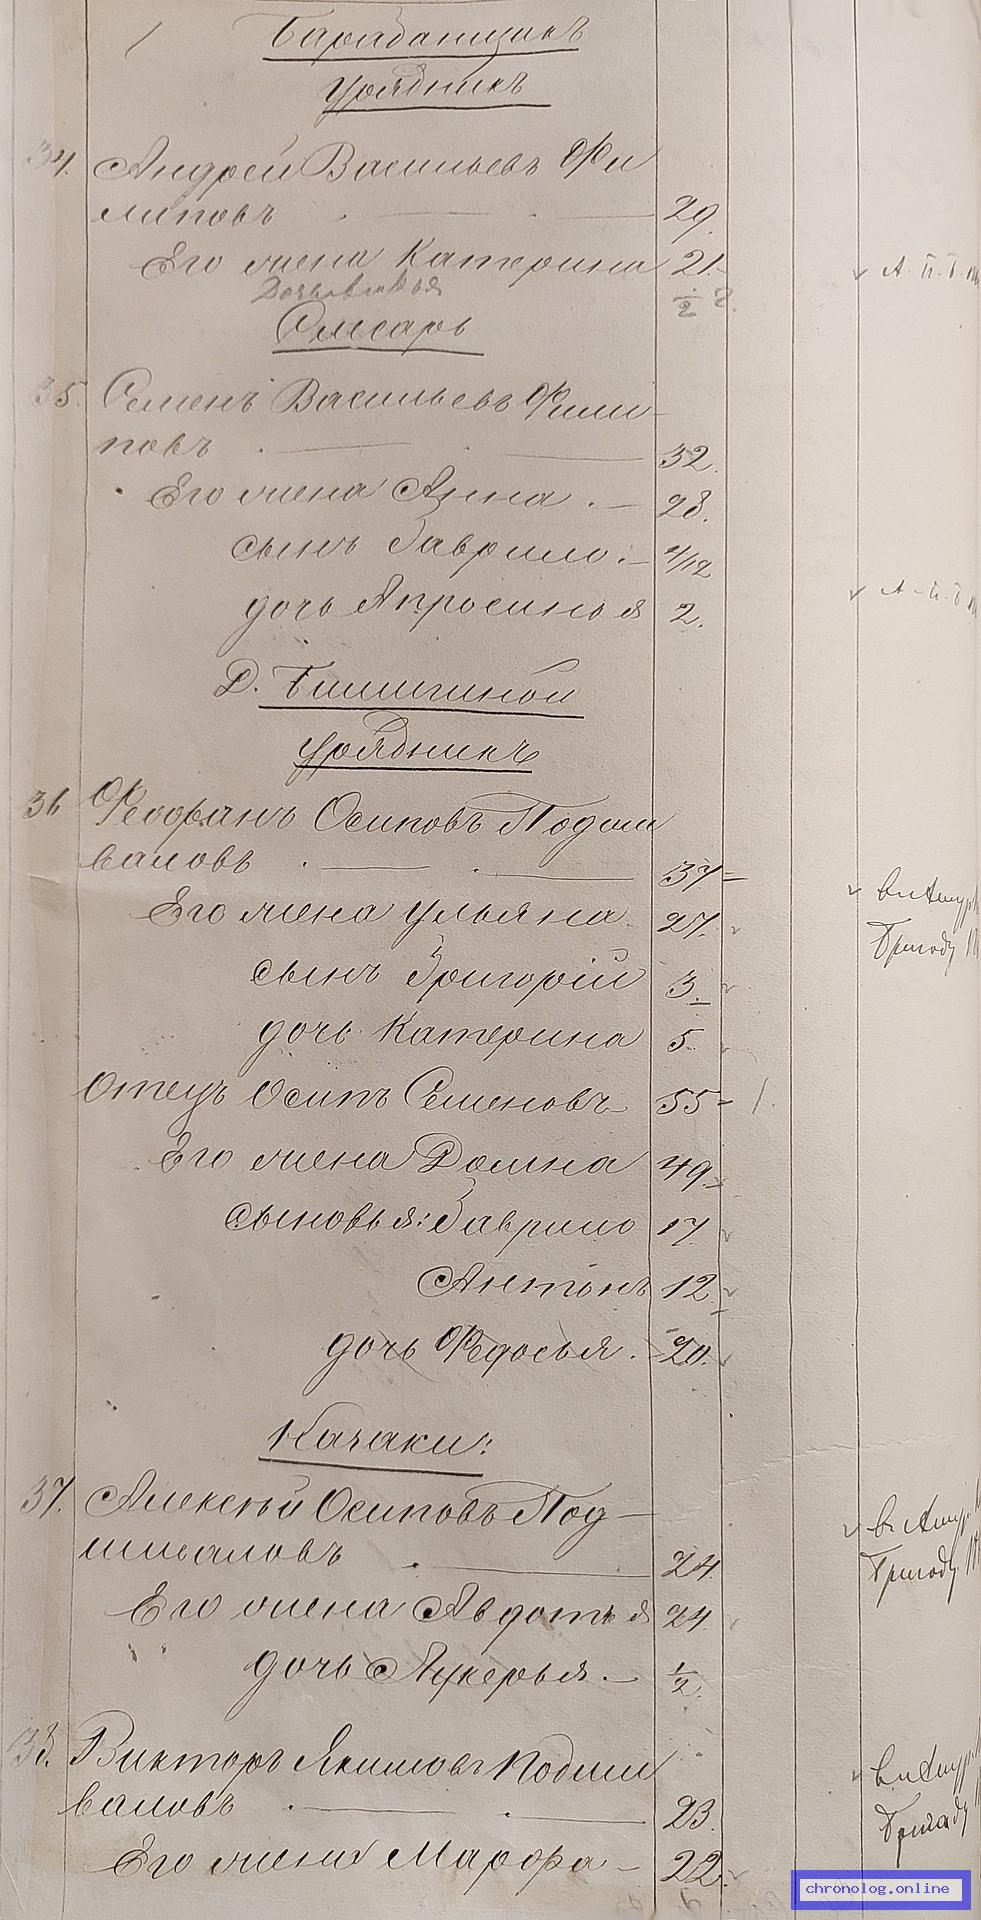 Барабанщикъ
Урядникъ
34. Андрей Васильевъ Фи
липовъ 29.
Его жена Катерина 21
1/2
Слесарь
35. Семенъ Васильевъ Фили
повъ 32.
Его жена Анна 28.
сынъ Гаврило 4/12
дочь Апросинья 2.
Д.
Урядникъ
36 Феофанъ Осиповъ Подши
валовъ 37
Его жена Ульяна 27.
сынъ Григорій 3.
дочь Катерина 5.
Отецъ Осипъ Семеновъ 55
Его жена Домна 49.
сыновья: Гаврило 17
Антонъ 12
дочь Федосья. 20.
Казаки:
37. Алексѣй Осиповъ Под
шиваловъ 24.
Его жена Авдотья 24
дочь Лукерья 1/2.
38. Викторъ Якимовъ Подши
валовъ 23.
Его жена Марфа 22.
А. П. Б.
А. П. Б.
въ Амур
Бригаду
въ Амур
Бригаду
въ Амур
Бригаду
chronolog.online